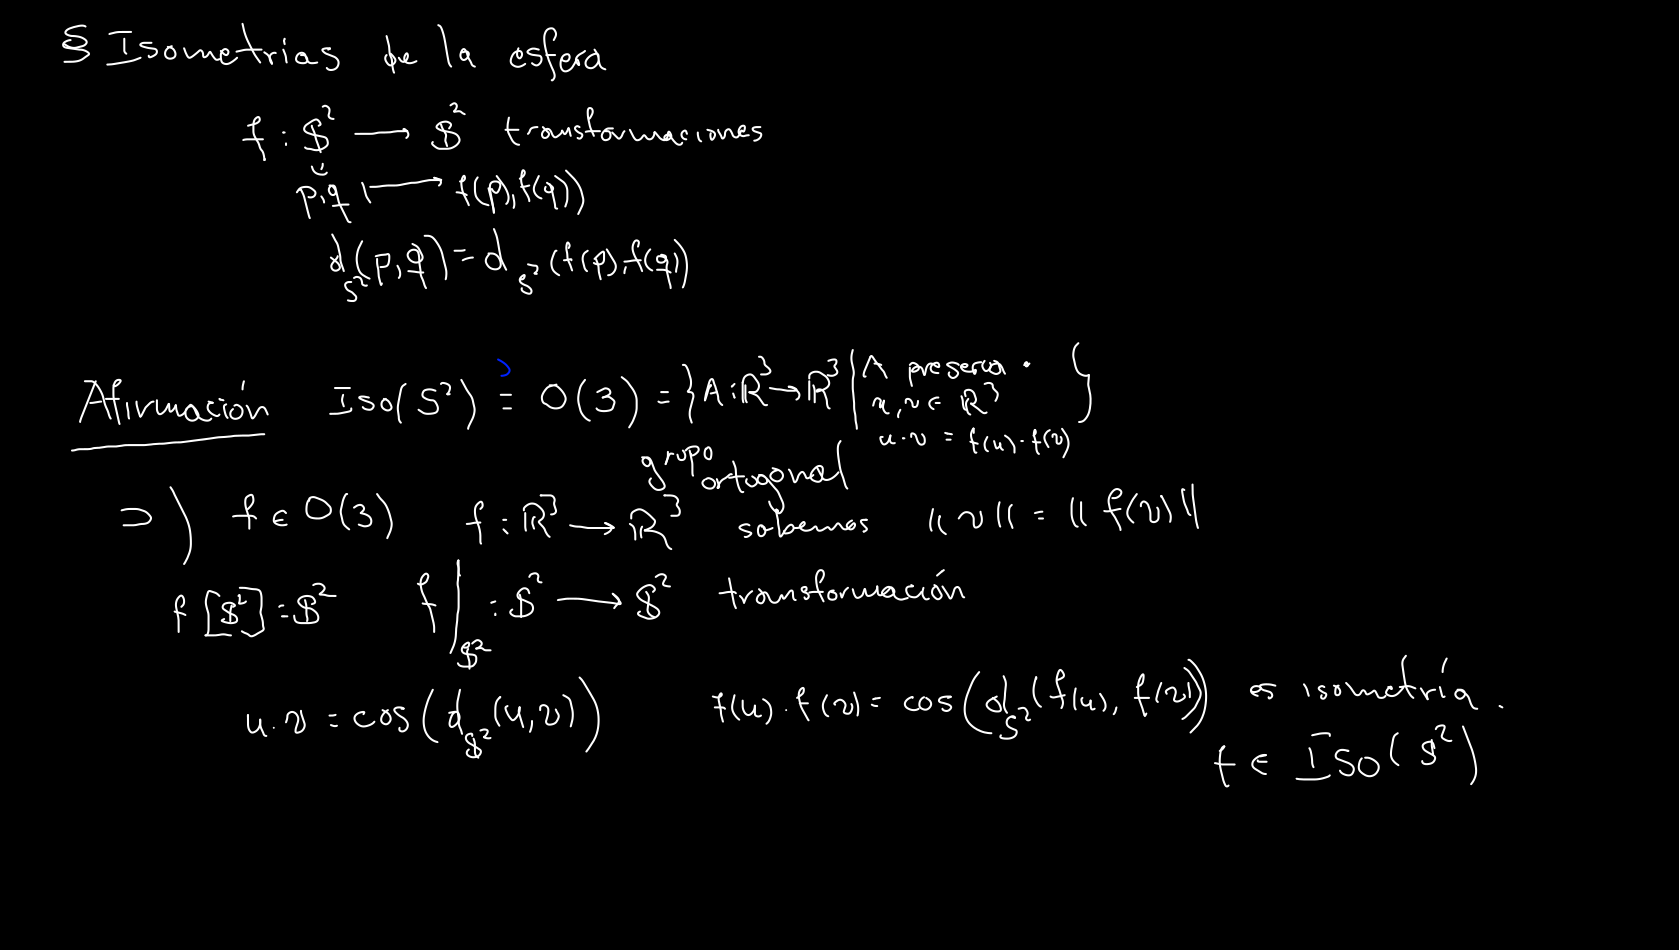 § Isometrías de la esfera
f : $² ⟶ $² transformaciones
p,q ⟼ f(p), f(q))
d_{S²}(p,q) = d_{S²}(f(p), f(q))
Afirmación Iso(S²) = O(3) = {A : ℝ³ → ℝ³ | A preserva ·
u,v ∈ ℝ³
u·v = f(u)·f(v) }
grupo ortogonal
⊃) f ∈ O(3) f : ℝ³ ⟶ ℝ³ sabemos ||v|| = ||f(v)||
f[$²] = $² f|_{$²} : $² ⟶ $² transformación
u·v = cos(d_{$²}(u,v)) f(u)·f(v) = cos(d_{S²}(f(u), f(v))) es isometría.
f ∈ Iso($²)